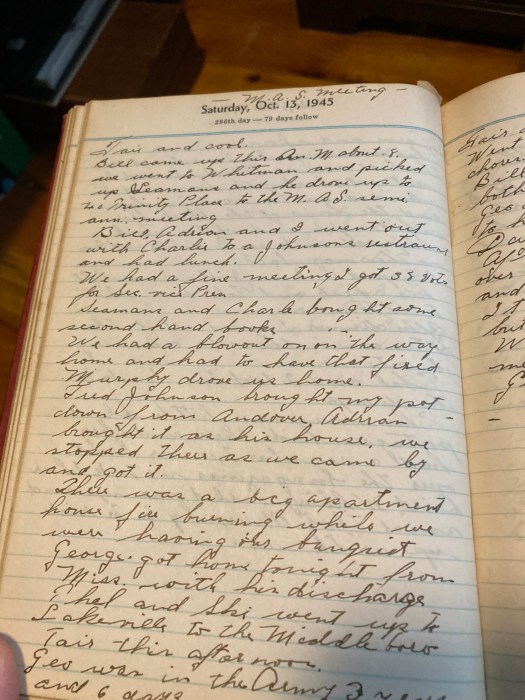 — M. A. S. meeting —
Saturday, Oct. 13, 1945
286th day — 79 days follow
Fair and cool.
Bill came up this A.M about 8,
we went to Whitman and picked
up Seamans and he drove up to
20 Trinity Place to the M. A. S. semi
ann. meeting
Bill, Adrian and I went out
with Charlie to a Johnsons
and had lunch.
We had a fine meeting, I got 38 Votes
for Sec. vice Pres
Seamans and Charle bought some
second hand books
We had a blowout on on the way
home and had to have that fixed
Murphy drove us home.
Fred Johnson brought my pot
down from Andover, Adrian
brought it as his house, we
stopped there as we came by
and got it.
There was a big apartment
house fire burning while we
were having our banquet
George got home tonight from
Miss. with his discharge
Chel and Ski went up to
Lakeville to the Middleboro
Fair this afternoon.
Geo was in the Army 3 years
and 6 days
Fair
Went
Bill
both
Geo
to
over
and
I
but
W
me